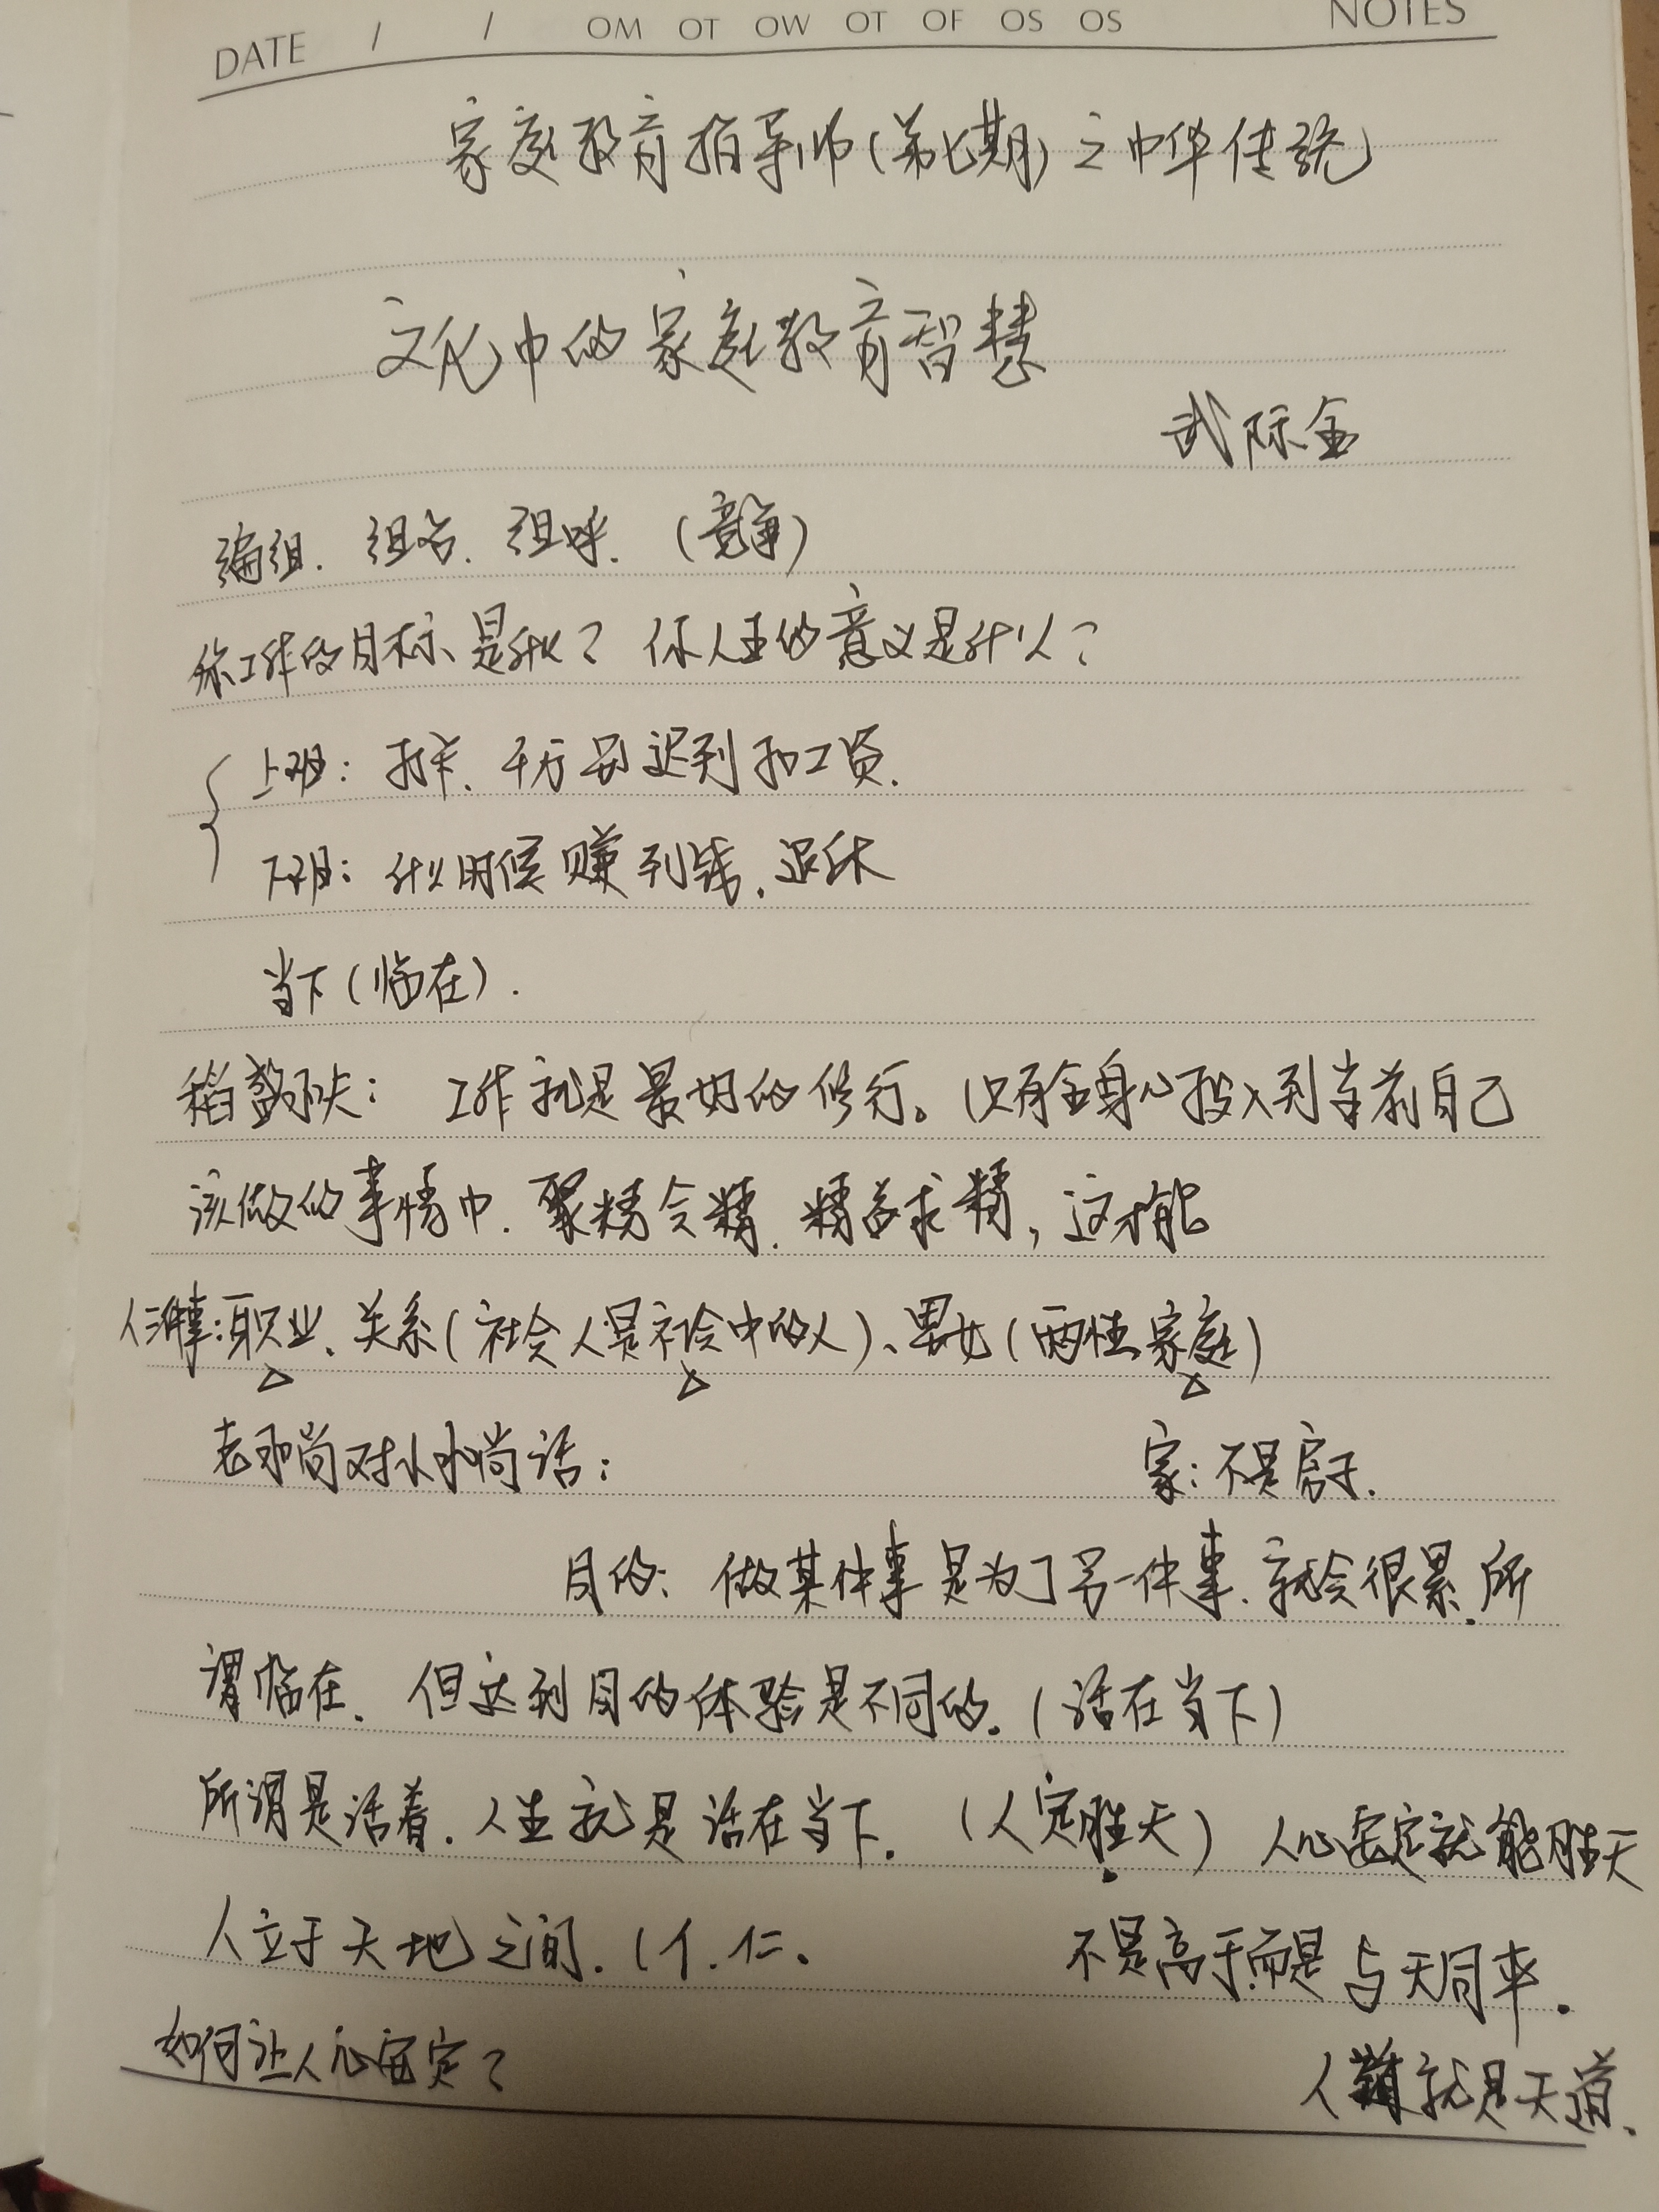 DATE / / OM OT OW OT OF OS OS NOTES
家庭教育指导师(第七期)之中华传统
文化中的家庭教育智慧
武际金
编组. 组名. 组呼. (竞争)
你工作的目标是什么? 你人生的意义是什么?
上班: 打卡、千万别迟到扣工资.
下班: 什么时候赚到钱.退休
当下(临在).
稻盛和夫: 工作就是最好的修行。只有全身心投入到当前自己
该做的事情中.聚精会精.精益求精,这才能
三件事:职业、关系(社会人是社会中的人)、男女(两性.家庭)
老和尚对小和尚话: 家:不是房子.
目的: 做某件事是为了另一件事.就会很累.所
谓临在. 但达到目的体验是不同的.(活在当下)
所谓是活着.人生就是活在当下. (人定胜天) 人心安定就能胜天
人立于天地之间.(亻.仁. 不是高于.而是与天同率.
如何让人心安定?
人道就是天道.